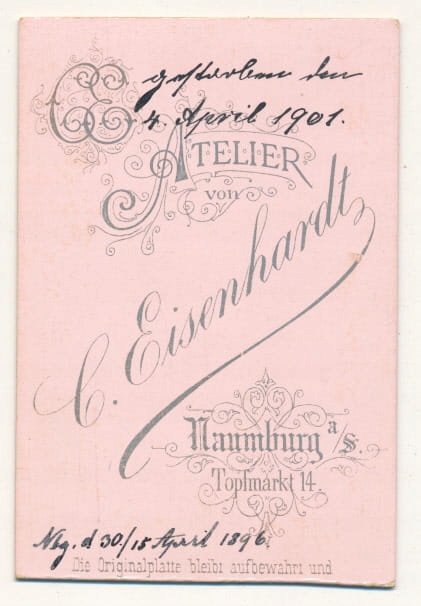 gestorben den
4. April 1901.
CE
ATELIER
von
C. Eisenhardt
Naumburg a/S.
Topfmarkt 14.
Nbg. d 30/15 April 1896.
Die Originalplatte bleibt aufbewahrt und